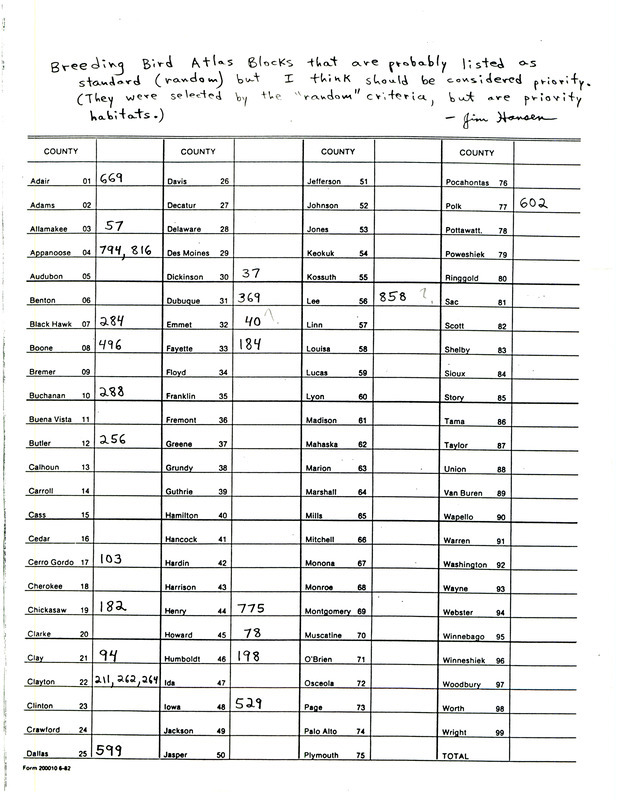 Breeding Bird Atlas Blocks that are probably listed as
standard (random) but I think should be considered priority.
(They were selected by the "random" criteria, but are priority
habitats.)
- Jim Hansen
COUNTY COUNTY COUNTY COUNTY
Adair 01 669 Davis 26 Jefferson 51 Pocahontas 76
Adams 02 Decatur 27 Johnson 52 Polk 77 602
Allamakee 03 57 Delaware 28 Jones 53 Pottawatt. 78
Appanoose 04 794, 816 Des Moines 29 Keokuk 54 Poweshiek 79
Audubon 05 Dickinson 30 37 Kossuth 55 Ringgold 80
Benton 06 Dubuque 31 369 Lee 56 858 ? Sac 81
Black Hawk 07 284 Emmet 32 40 Linn 57 Scott 82
Boone 08 496 Fayette 33 184 Louisa 58 Shelby 83
Bremer 09 Floyd 34 Lucas 59 Sioux 84
Buchanan 10 288 Franklin 35 Lyon 60 Story 85
Buena Vista 11 Fremont 36 Madison 61 Tama 86
Butler 12 256 Greene 37 Mahaska 62 Taylor 87
Calhoun 13 Grundy 38 Marion 63 Union 88
Carroll 14 Guthrie 39 Marshall 64 Van Buren 89
Cass 15 Hamilton 40 Mills 65 Wapello 90
Cedar 16 Hancock 41 Mitchell 66 Warren 91
Cerro Gordo 17 103 Hardin 42 Monona 67 Washington 92
Cherokee 18 Harrison 43 Monroe 68 Wayne 93
Chickasaw 19 182 Henry 44 775 Montgomery 69 Webster 94
Clarke 20 Howard 45 78 Muscatine 70 Winnebago 95
Clay 21 94 Humboldt 46 198 O'Brien 71 Winneshiek 96
Clayton 22 211, 262, 264 Ida 47 Osceola 72 Woodbury 97
Clinton 23 Iowa 48 529 Page 73 Worth 98
Crawford 24 Jackson 49 Palo Alto 74 Wright 99
Dallas 25 599 Jasper 50 Plymouth 75 TOTAL
Form 200010 6-82